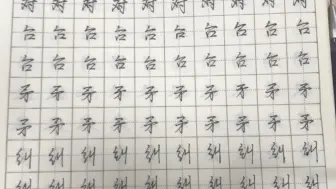 台台台台台台台台台台
台台台台台台台台台台
矛矛矛矛矛矛矛矛矛矛
矛矛矛矛矛矛矛矛矛矛
纠纠纠纠纠纠纠纠纠纠
纠纠纠纠纠纠纠纠纠纠